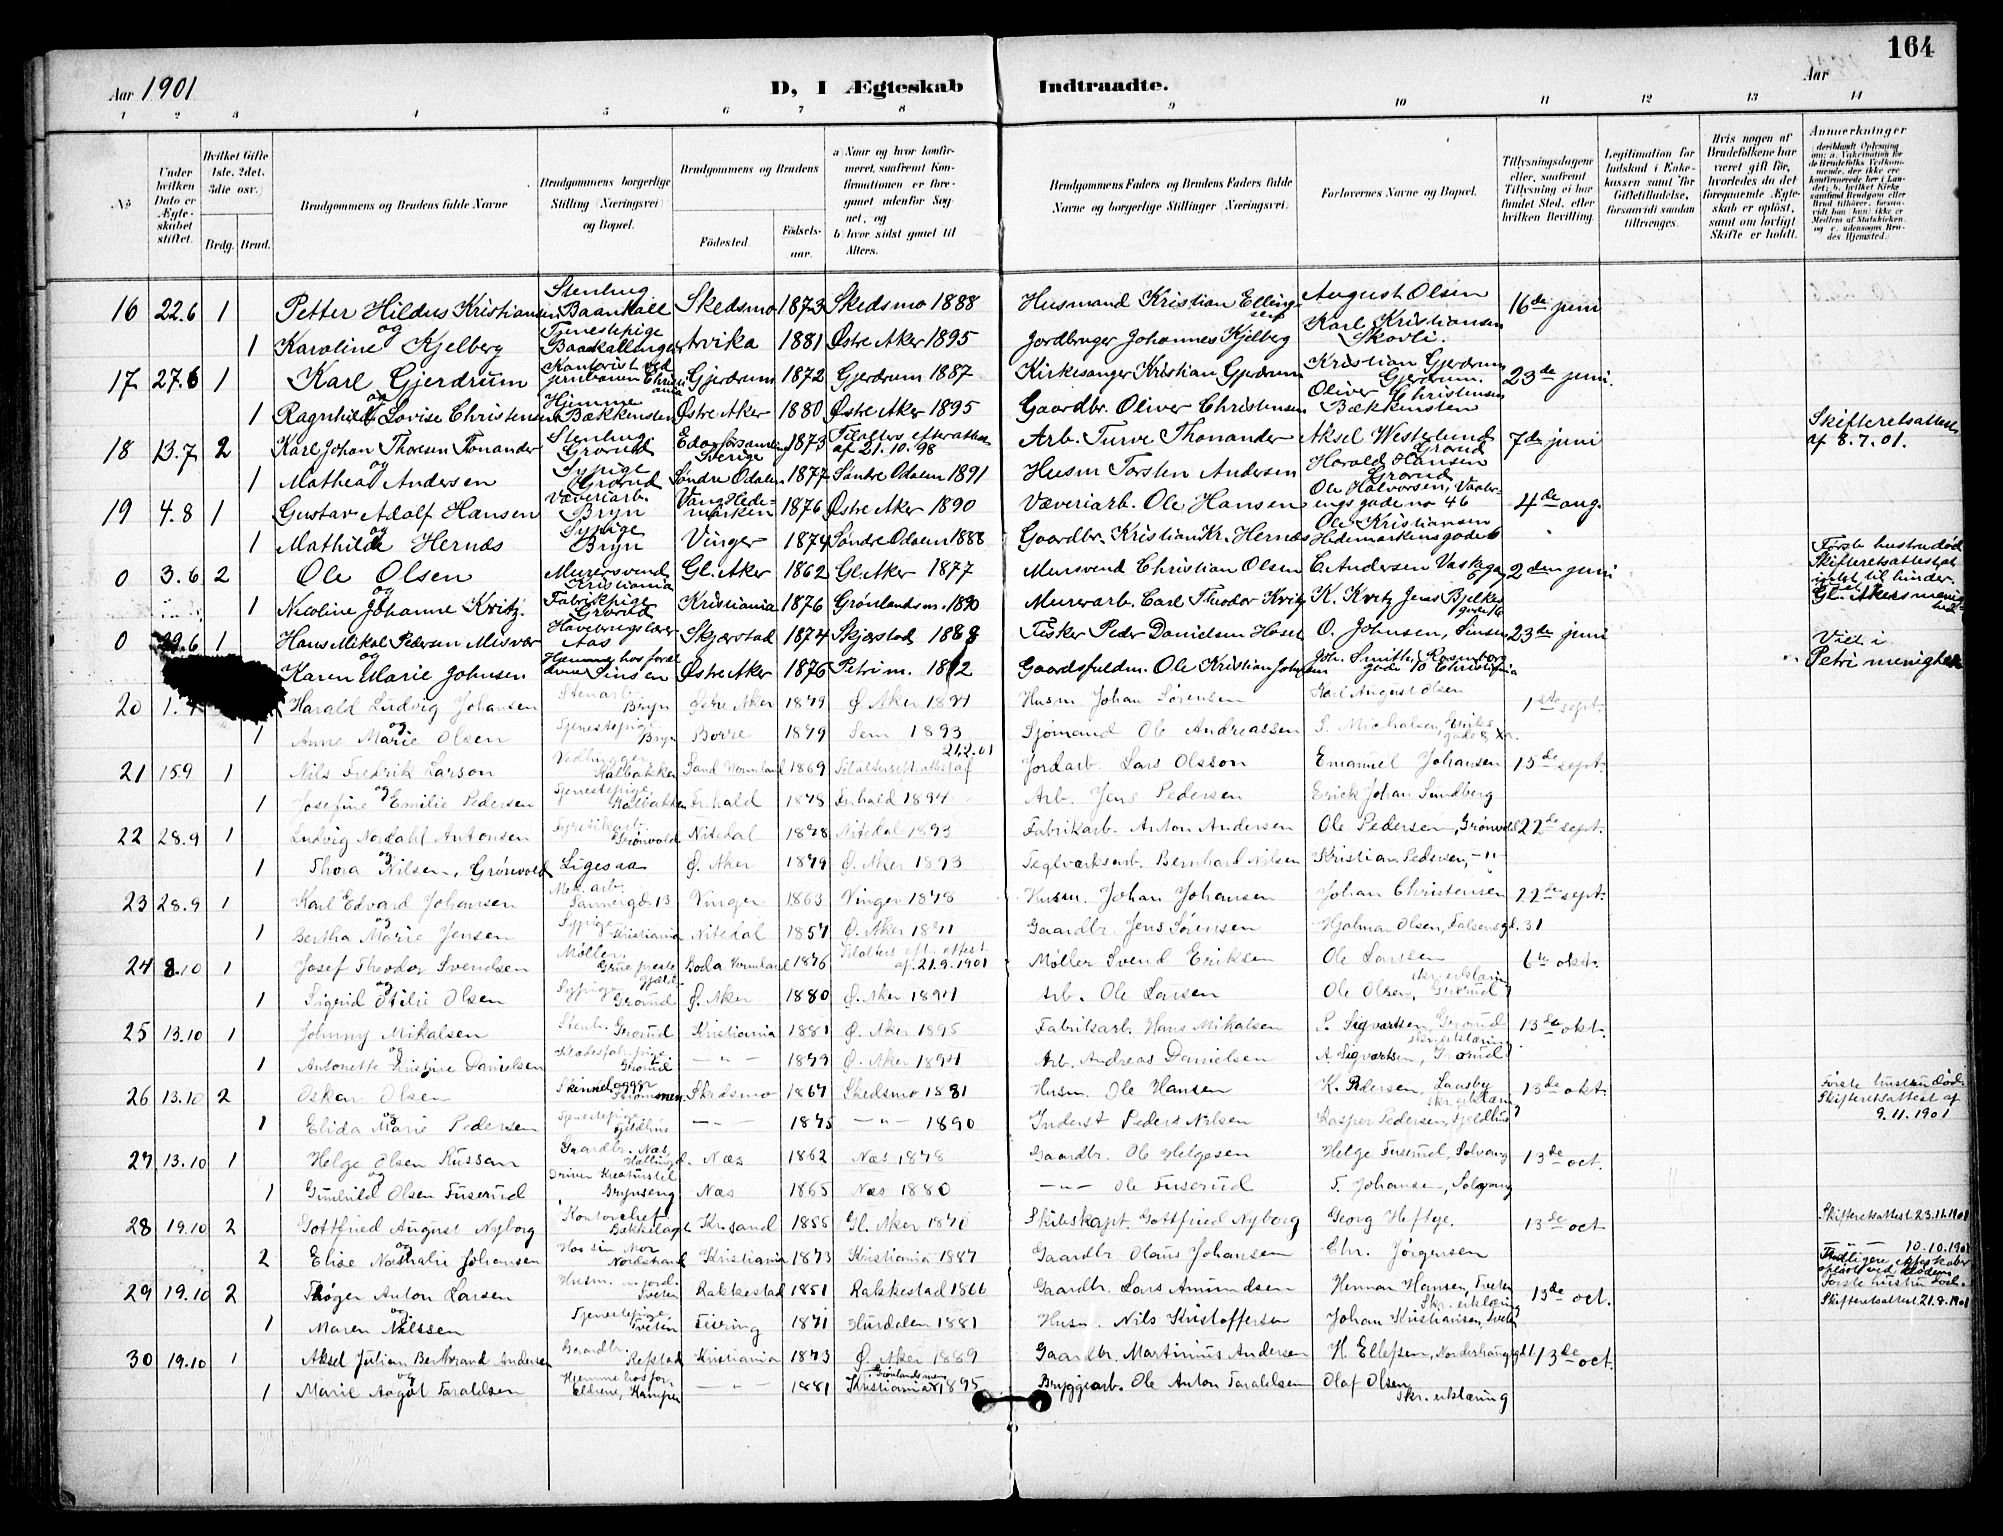 164
Aar 1901 D, I Ægteskab Indtraadte. Aar
1 2 3 4 5 6 7 8 9 10 11 12 13 14
No Under hvilken Dato er Ægteskabet stiftet. Hvilket Gifte 1ste. 2det. 3die osv. Brdg. Brud. Brudgommens og Brudens fulde Navne Brudgommens borgerlige Stilling (Næringsvei) og Bopæl. Brudgommens og Brudens Fødested. Fødselsaar. a) Naar og hvor konfirmeret, saafremt Konfirmationen er foregaaet udenfor Sognet, og b) hvor sidst gaaet til Alters.
Brudgommens Faders og Brudens Faders fulde Navne og borgerlige Stillinger (Næringsvei) Forlovernes Navne og Bopæl. Tillysningsdagene eller, saafremt Tillysning ei har fundet Sted, efter hvilken Bevilling. Legitimation for Indskud i Enkekassen samt for Giftetilladelse, forsaavidt saadan tiltrænges. Hvis nogen af Brudefolkene har været gift før, hvorledes da det foregaaende Ægteskab er opløst, samt om lovligt Skifte er holdt. Anmerkninger
16 22.6 1 Petter Hildus Kristiansen Stenhug Baankall Skedsmo 1873 Skedsmo 1888 Husmand Kristian Ellingsen August Olsen 16de juni
og
1 Karoline Kjelberg Tjenestepige Arvika 1881 Østre Aker 1895 Jordbruger Johannes Kjelberg Karl Kristiansen Skovli.
17 27.6 1 Karl Gjerdrum Kontorist ved jernbanen Gjerdrum 1872 Gjerdrum 1887 Kirkesanger Kristian Gjerdrum Kristian Gjerdrum Gjerdrum. 23de juni.
og
1 Ragnhild Lovise Christensen Hjemme Bækkensten Østre Aker 1880 Østre Aker 1895 Gaardbr. Oliver Christensen Oliver Christensen Bækkensten
18 13.7 2 Karl Johan Thoresen Tonander Stenhug Grorud Sverige 1873 af 21.10.98 Arb. Ture Thonander Aksel Westerlund Grorud 7de juni Skifteretsattest af 8.7.01.
og
1 Mathea Andersen Sypige Grorud Søndre Odalen 1877 Søndre Odalen 1891 Husm Torsten Andersen Harald Hansen Grorud
19 4.8 1 Gustav Adolf Hansen Væveriarb. Bryn Vang Hedemarken 1876 Østre Aker 1890 Væveriarb. Ole Hansen Ole Halvorsen, no 46 4de aug.
og
1 Mathilde Hernæs Sypige Bryn Vinger 1874 Søndre Odalen 1888 Gaardbr. Kristian Kr. Hernæs Ole Kristiansen Hedemarkensgade 6
0 3.6 2 Ole Olsen Murersvend Kristiania Gl. Aker 1862 Gl. Aker 1877 Mursvend Christian Olsen C. Andersen 2den juni Første hustru død Skifteretsattest at intet til hinder. Gl. Akers menighed
og
1 Nicoline Johanne Kvitz. Fabrikpige Grorud Kristiania 1876 Grønlands m. 1890 Murerarb. Carl Theodor Kvitz K. Kvitz Jens Bjelkes gade 16
0 29.6 1 Hans Mikal Pedersen Misvær Aas Skjærstad 1874 Skjærstad 1888 Fisker Peder Danielsen O. Johnsen, Sinsen 23de juni Viet i Petri menighed
og
Karen Marie Johnsen Hjemme hos forældrene Sinsen Østre Aker 1876 Petri m. 1892 Gaardsfuldm. Ole Kristian Johnsen Joh. Smith, Rosenborg gade 10 Christiania
20 1. Harald Ludvig Johansen Stenarb. Bryn Østre Aker 1879 Ø. Aker 1894 Husm Johan Sørensen Karl August Olsen 1ste sept.
og
1 Anne Marie Olsen Tjenestepige Bryn Borre 1879 Sem 1893 Sjømand Ole Andreassen P. Michalsen,
21 15.9 1 Nils Fredrik Larson Kalbakken Sand Vermland 1869 21.2.01 Jordarb Lars Olsson Emanuel Johansen 15de sept.
og
1 Josefine Emilie Pedersen Tjenestepige Kalbakken Fr.hald 1878 Fr.hald 1894 Arb. Jens Pedersen Erick Johan Sundberg
22 28.9 1 Ludvig Nordahl Antonsen Grønvold Nitedal 1878 Nitedal 1893 Fabrikarb. Anton Andersen Ole Pedersen, Grønvold 22de sept.
og
1 Thora Nilsen, Grønvold Ligesaa Ø. Aker 1879 Ø. Aker 1893 Teglværksarb. Bernhard Nilsen Kristian Pedersen, -"-
23 28.9 1 Karl Edvard Johansen Mek. arb. Sannergd. 13 Vinger 1863 Vinger 1878 Husm. Johan Johansen Johan Christensen 22de sept.
og
1 Bertha Marie Jensen Sypige Kristiania Nitedal 1857 Ø. Aker 1871 Gaardbr. Jens Sørensen Hjalmar Olsen, Falsensgd. 31
24 8.10 1 Josef Theodor Svendsen Møller Grue præstegjæld Boda Vermland 1876 Tilalters eft. attest af 21.9.1901 Møller Svend Eriksen Ole Larsen 6te okt.
og
1 Sigrid Otilie Olsen Sypige Grorud Ø. Aker 1880 Ø. Aker 1894 Arb. Ole Larsen Ole Olsen, Grorud skr. erklæring
25 13.10 1 Johnny Mikalsen Stenh. Grorud Kristiania 1881 Ø. Aker 1895 Fabriksarb. Hans Mikalsen P. Sigvartsen, Grorud 13de okt.
og
1 Antonette Kristine Danielsen Grorud -"- 1879 Ø. Aker 1894 Arb. Andreas Danielsen A. Sigvartsen, Grorud skr. erklæring
26 13.10 2 Oskar Olsen Strømmen Skedsmo 1867 Skedsmo 1881 Husm. Ole Hansen K. Pedersen, 13de okt. Første hustru død. Skifteretsattest af 9.11.1901
og
1 Elida Marie Pedersen Tjenestepige Fjeldhus -"- 1875 -"- 1890 Inderst Peder Nilsen Kasper Pedersen, Fjeldhus skr. erklæring
27 13.10 1 Helge Olsen Russan Gaardbr. Næs, Hallingd. Næs 1862 Næs 1878 Gaardbr. Ole Helgesen Helge Fuserud, Solvang 13de oct.
og
1 Gunhild Olsen Fuserud Brynseng Næs 1865 Næs 1880 -"- Ole Fuserud T. Johansen, Solvang
28 19.10 2 Gottfried August Nyborg Kontorchef Bækkelaget Kr.sand 1855 Gl. Aker 1870 Skibskapt. Gottfried Nyborg Georg Heftye. 13de oct Skifteretsattest 23.11.1901
og
2 Elise Nathalie Johansen Hos sin Mor Nordstrand Kristiania 1873 Kristiania 1887 Gaardbr. Olaus Johansen Chr. Jørgensen -"- 10.10.1901 Tidligere ægteskaber opløst ved døden
29 19.10 2 Thøger Anton Larsen Husm. m. jord. Tveten Rakkestad 1851 Rakkestad 1866 Gaardbr. Lars Amundsen Herman Hansen, Tveten 13de oct. Første hustru død. Skifteretsattest 21.8.1901
og
1 Maren Nilssen Tjenestepige Tveten Feiring 1871 Hurdalen 1881 Husm. Nils Kristoffersen Johan Kristiansen, Tveten Skr. erklæring
30 19.10 1 Aksel Julian Berthrand Andersen Gaardbr. Refstad Kristiania 1873 Ø. Aker 1889 Gaardbr. Martinius Andersen H. Ellefsen, 13de oct.
og
1 Marie Aagot Faraldsen Hjemme hos forældrene, Kampen -"- 1881 Kristiania 1895 Bryggearb. Ole Anton Faraldsen Olaf Olsen Skr. erklæring